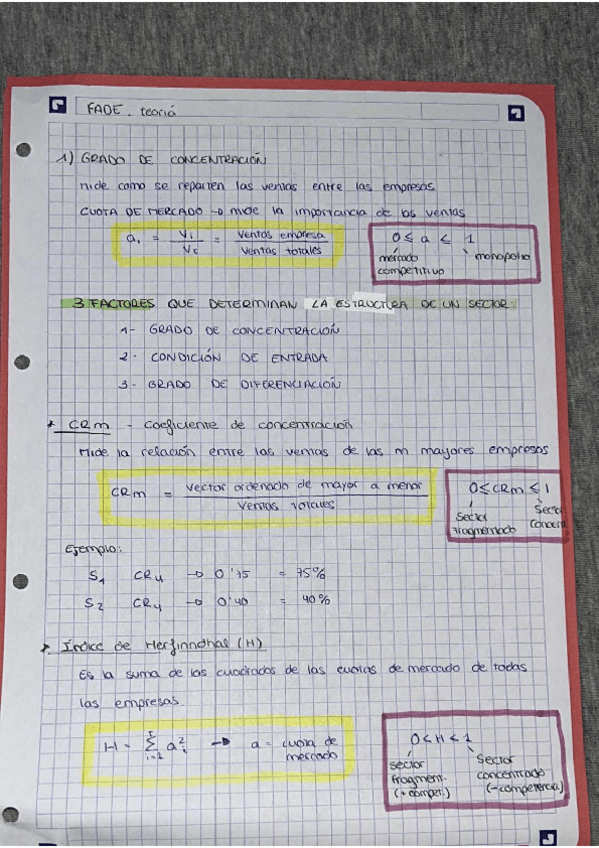 FADE. teoriá
1) GRADO DE CONCENTRACIÓN
mide como se reparten las ventas entre las empresas
CUOTA DE MERCADO → mide la importancia de las ventas
a₁ = Vi / Vc = ventas empresa / ventas totales
0 ≤ a ≤ 1
mercado competitivo
monopolio
3 FACTORES QUE DETERMINAN LA ESTRUCTURA DE UN SECTOR:
1- GRADO DE CONCENTRACIÓN
2- CONDICIÓN DE ENTRADA
3- GRADO DE DIFERENCIACIÓN
* CRm - Coeficiente de concentración
Mide la relación entre las ventas de las m mayores empresas
CRm = vector ordenado de mayor a menor / ventas totales
0 ≤ CRm ≤ 1
Sector fragmentado
Sector
Ejemplo:
S₁ CR4 → 0'75 = 75%
S₂ CR4 → 0'40 = 40%
* Índice de Herfinndhal (H)
Es la suma de los cuadrados de las cuotas de mercado de todas
las empresas.
H = Σ i=1 a²i → a = cuota de mercado
0 < H < 1
sector fragment. (+ compet.)
Sector concentrado (- competencia)